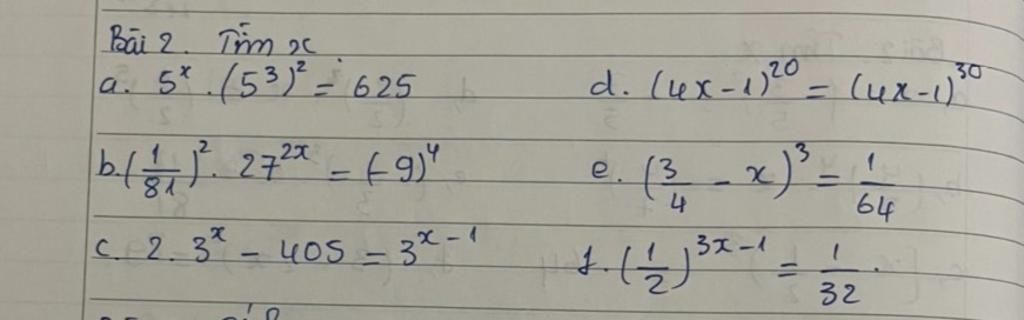 Bài 2. Tìm x
a. 5^x . (5^3)^2 = 625
d. (4x-1)^20 = (4x-1)^30
b. (1/81)^2 . 27^2x = (-9)^4
e. (3/4 - x)^3 = 1/64
c. 2. 3^x - 405 = 3^x-1
f. (1/2)^3x-1 = 1/32.